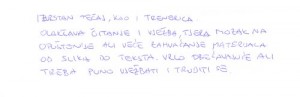 IZVRSTAN TEČAJ, KAO I TRENERICA.
OLAKŠAVA ČITANJE I VJEŽBA, TJERA MOZAK NA
OPUŠTANJE ALI VEĆE ZAHVAĆANJE MATERIJALA
OD SLIKA DO TEKSTA. VRLO OBEĆAVAJUĆE ALI
TREBA PUNO VJEŽBATI I TRUDITI SE